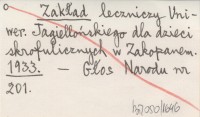 Zakład leczniczy Uni-
wer. Jagiellońskiego dla dzieci
skrofulicznych w Zakopanem.
1933. — Głos Narodu nr
201.